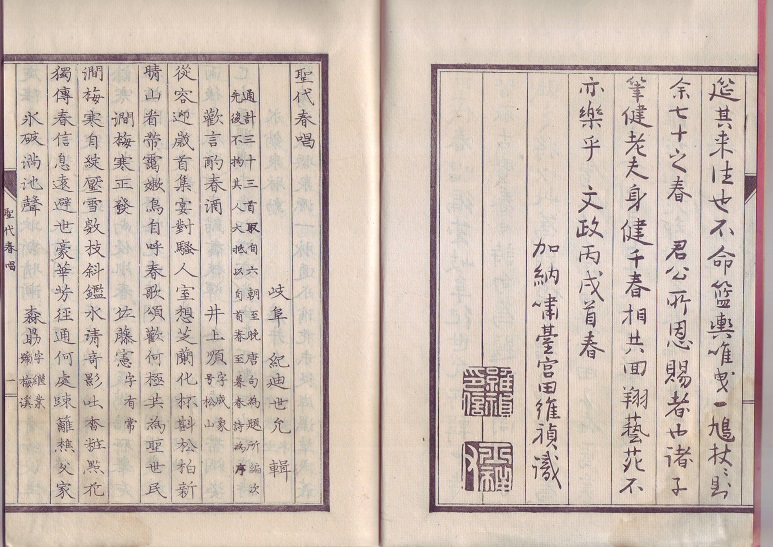 筵其来往也不命籃輿唯曳一鳩杖〻則
余七十之春 君公所恩賜者也諸子
筆健老夫身健千春相共回翔藝苑不
亦樂乎 文政丙戌首春
加納嘯臺宮田維禎識
聖代春唱
岐阜 紀迪世允 輯
通計三十三首取句六朝至晚唐句為題所編次
先後不拘其人大抵以自首春至暮春詩為序
歡言酌春酒 井上頌 字咸象 号松山
從容迎歲首集宴對騷人室想芝蘭化杯斟松柏新
晴山看帶靄嫩鳥自呼春歌頌歡何極共為聖世民
澗梅寒正發 佐藤憲 字有常
澗梅寒自綻壓雪數枝斜鑑水清奇影吐香粧點花
獨傳春信息遠避世豪華芳徑通何處疎籬樵父家
氷破満池聲 森勗 字繼業 號梅溪
聖代春唱 一